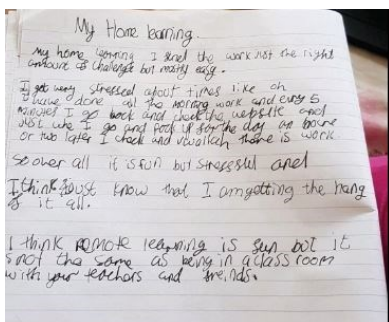 My Home learning.
My home learning I find the work just the right
amount of challenge but mostly easy.
I get very stressed about times like oh
I have done all the morning work and every 5
minutes I go back and check the website and
just whe I go and pack up for the day an houre
or two later I check and there is work
So over all it is fun but stressful and
I think I just know that I am getting the hang
of it all.
I think remote learning is fun but it
s not the same as being in a class room
with your teachers and freinds.